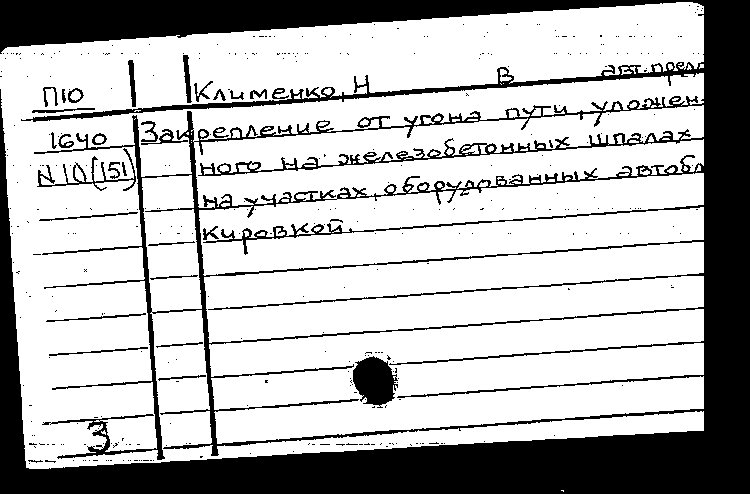 П10 Клименко, Н В авт. предл
1640 Закрепление от угона пути, уложен-
N 10(151) ного на железобетонных шпалах
на участках, оборудованных автобл
кировкой.
3